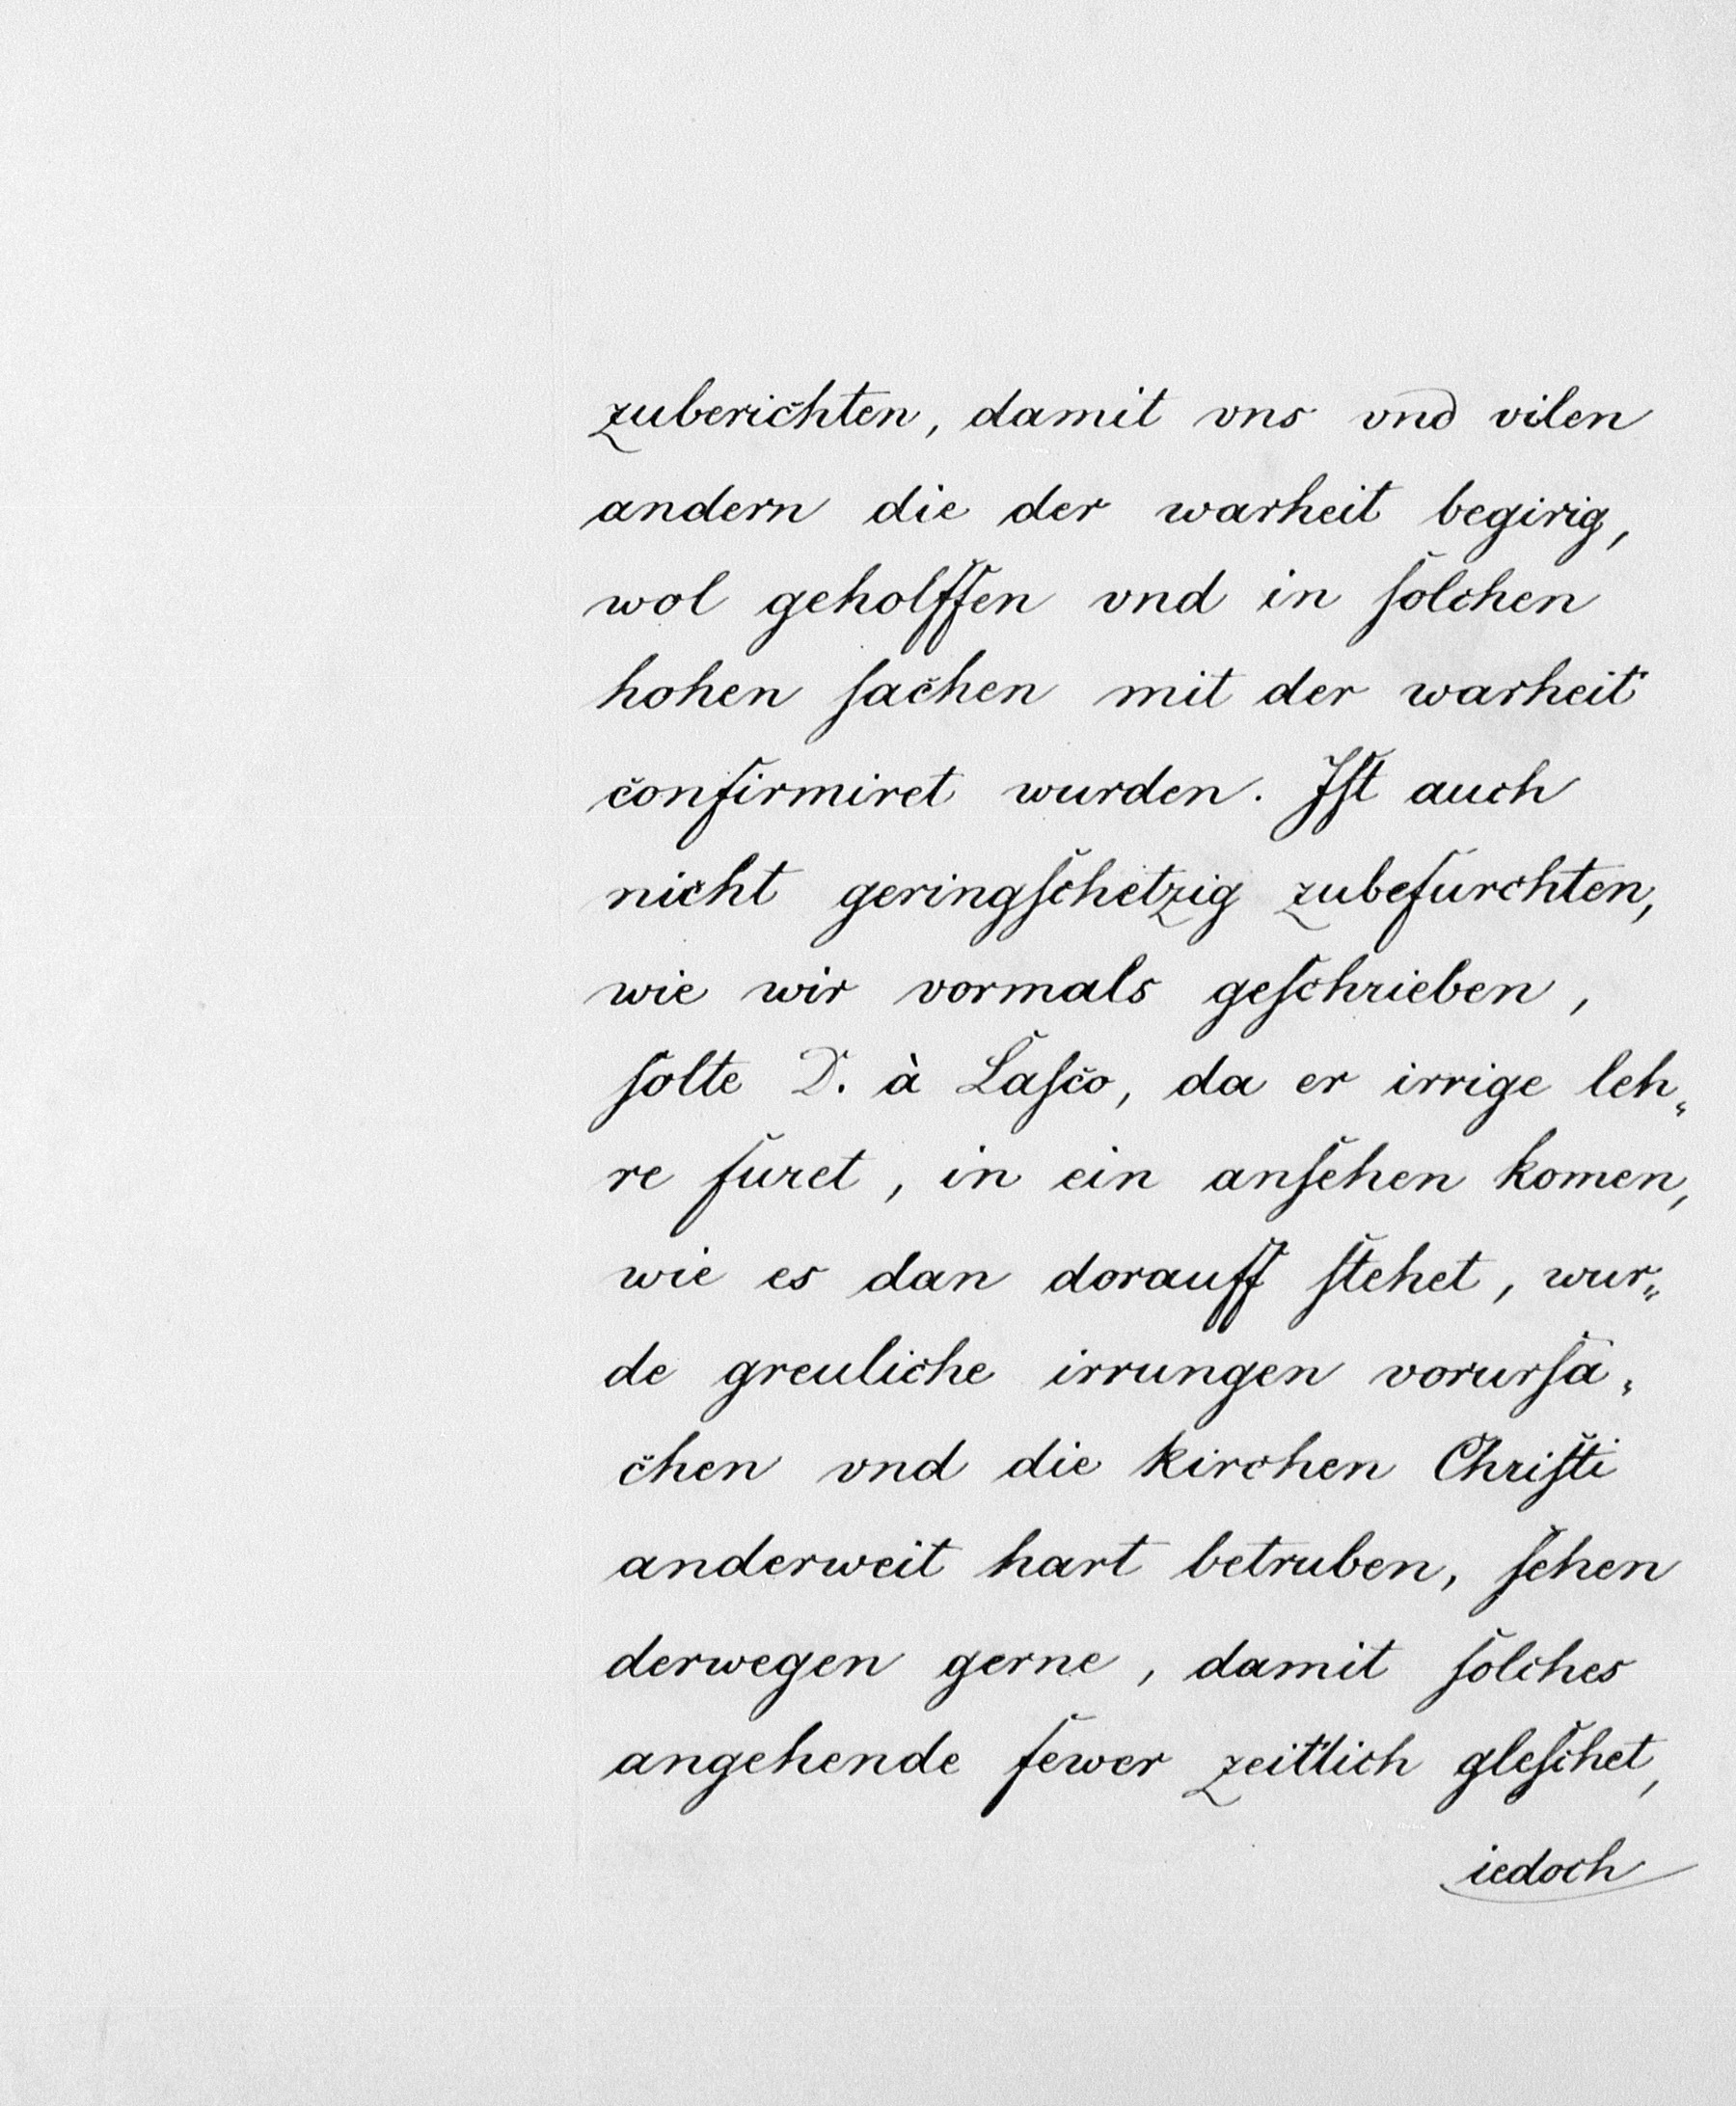 zuberichten, damit vns vnd vilen
andern die der warheit begirig,
wol geholffen vnd in ſolchen
hohen ſachen mit der warheit
confirmiret wurden. Iſt auch
nicht geringſchetzig zubefurchten,
wie wir vormals geſchrieben,
ſolte D. à Laſco, da er irrige leh„
re furet, in ein anſehen komen,
wie es dan dorauff ſtehet, wur„
de greuliche irrungen vorurſa„
chen vnd die kirchen Chriſti
anderweit hart betruben, ſehen
derwegen gerne, damit ſolches
angehende fewer zeitlich gleſchet,
iedoch